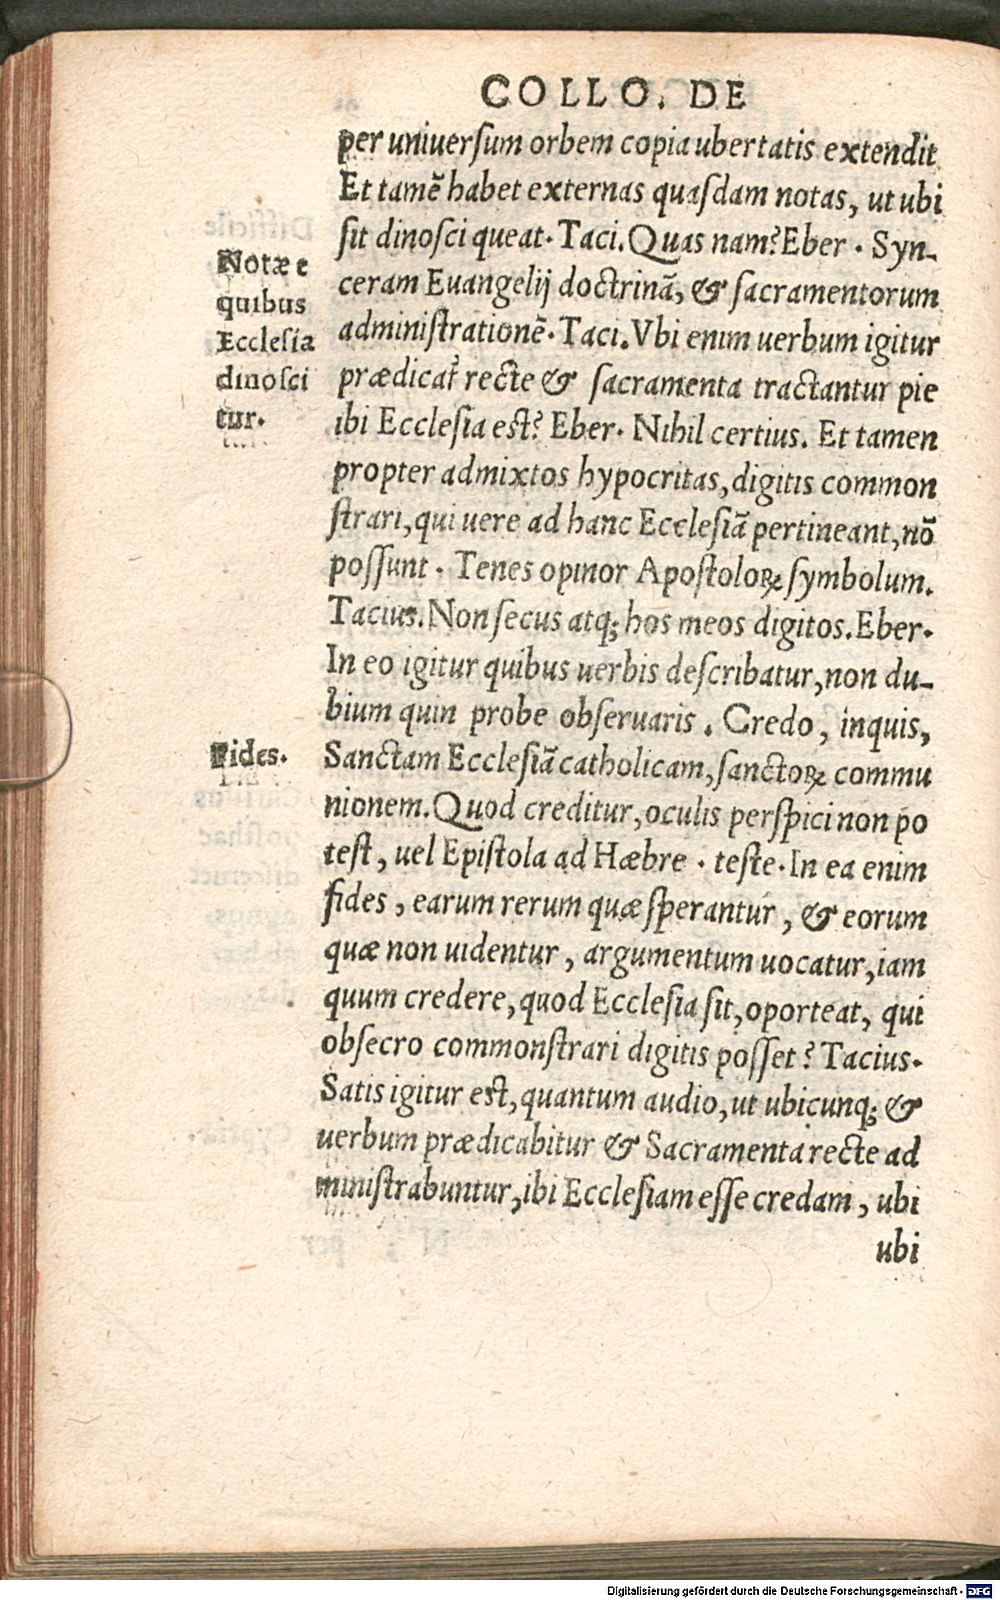 COLLO. DE
per uniuerſum orbem copia ubertatis extendit
Et tamē habet externas quaſdam notas, ut ubi
ſit dinoſci queat. Taci. Quas nam? Eber. Syn-
ceram Euangelij doctrinā, & ſacramentorum
adminiſtrationē. Taci. Vbi enim uerbum igitur
prædicat᷑ recte & ſacramenta tractantur pie
ibi Eccleſia est? Eber. Nihil certius. Et tamen
propter admixtos hypocritas, digitis common
ſtrari, qui uere ad hanc Eccleſiā pertineant, nō
poſſunt. Tenes opinor Apoſtoloꝝ ſymbolum.
Tacius. Non ſecus atq; hos meos digitos. Eber.
In eo igitur quibus uerbis deſcribatur, non du-
bium quin probe obſeruaris. Credo, inquis,
Sanctam Eccleſiā catholicam, ſanctoꝝ commu
nionem. Quod creditur, oculis perſpici non po
teſt, uel Epiſtola ad Hæbre. teſte. In ea enim
fides, earum rerum quæ ſperantur, & eorum
quæ non uidentur, argumentum uocatur, iam
quum credere, quod Eccleſia ſit, oporteat, qui
obſecro commonſtrari digitis poſſet? Tacius.
Satis igitur est, quantum audio, ut ubicunq; &
uerbum prædicabitur & Sacramenta recte ad
miniſtrabuntur, ibi Eccleſiam eſſe credam, ubi
ubi
Notæ e
quibus
Eccleſia
dinoſci
tur.
Fides.
Digitalisierung gefördert durch die Deutsche Forschungsgemeinschaft - DFG